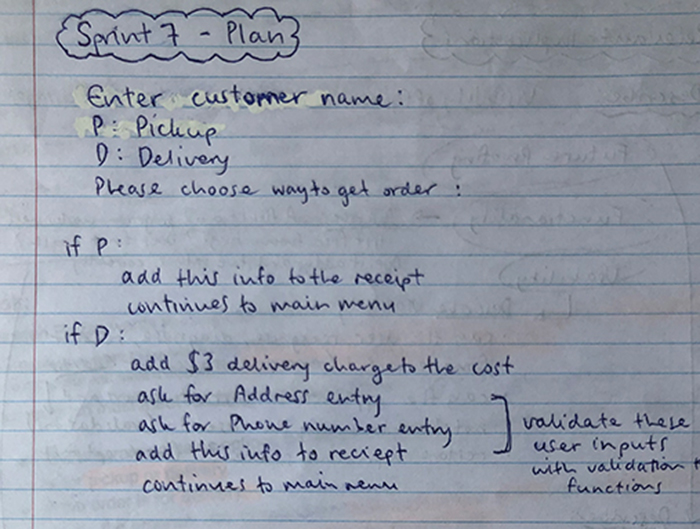 Sprint 7 - Plan
Enter customer name:
P: Pickup
D: Delivery
Please choose way to get order :
if P:
add this info to the receipt
continues to main menu
if D:
add $3 delivery charge to the cost
ask for Address entry
ask for Phone number entry
add this info to reciept
continues to main menu
validate these
user inputs
with validation
functions